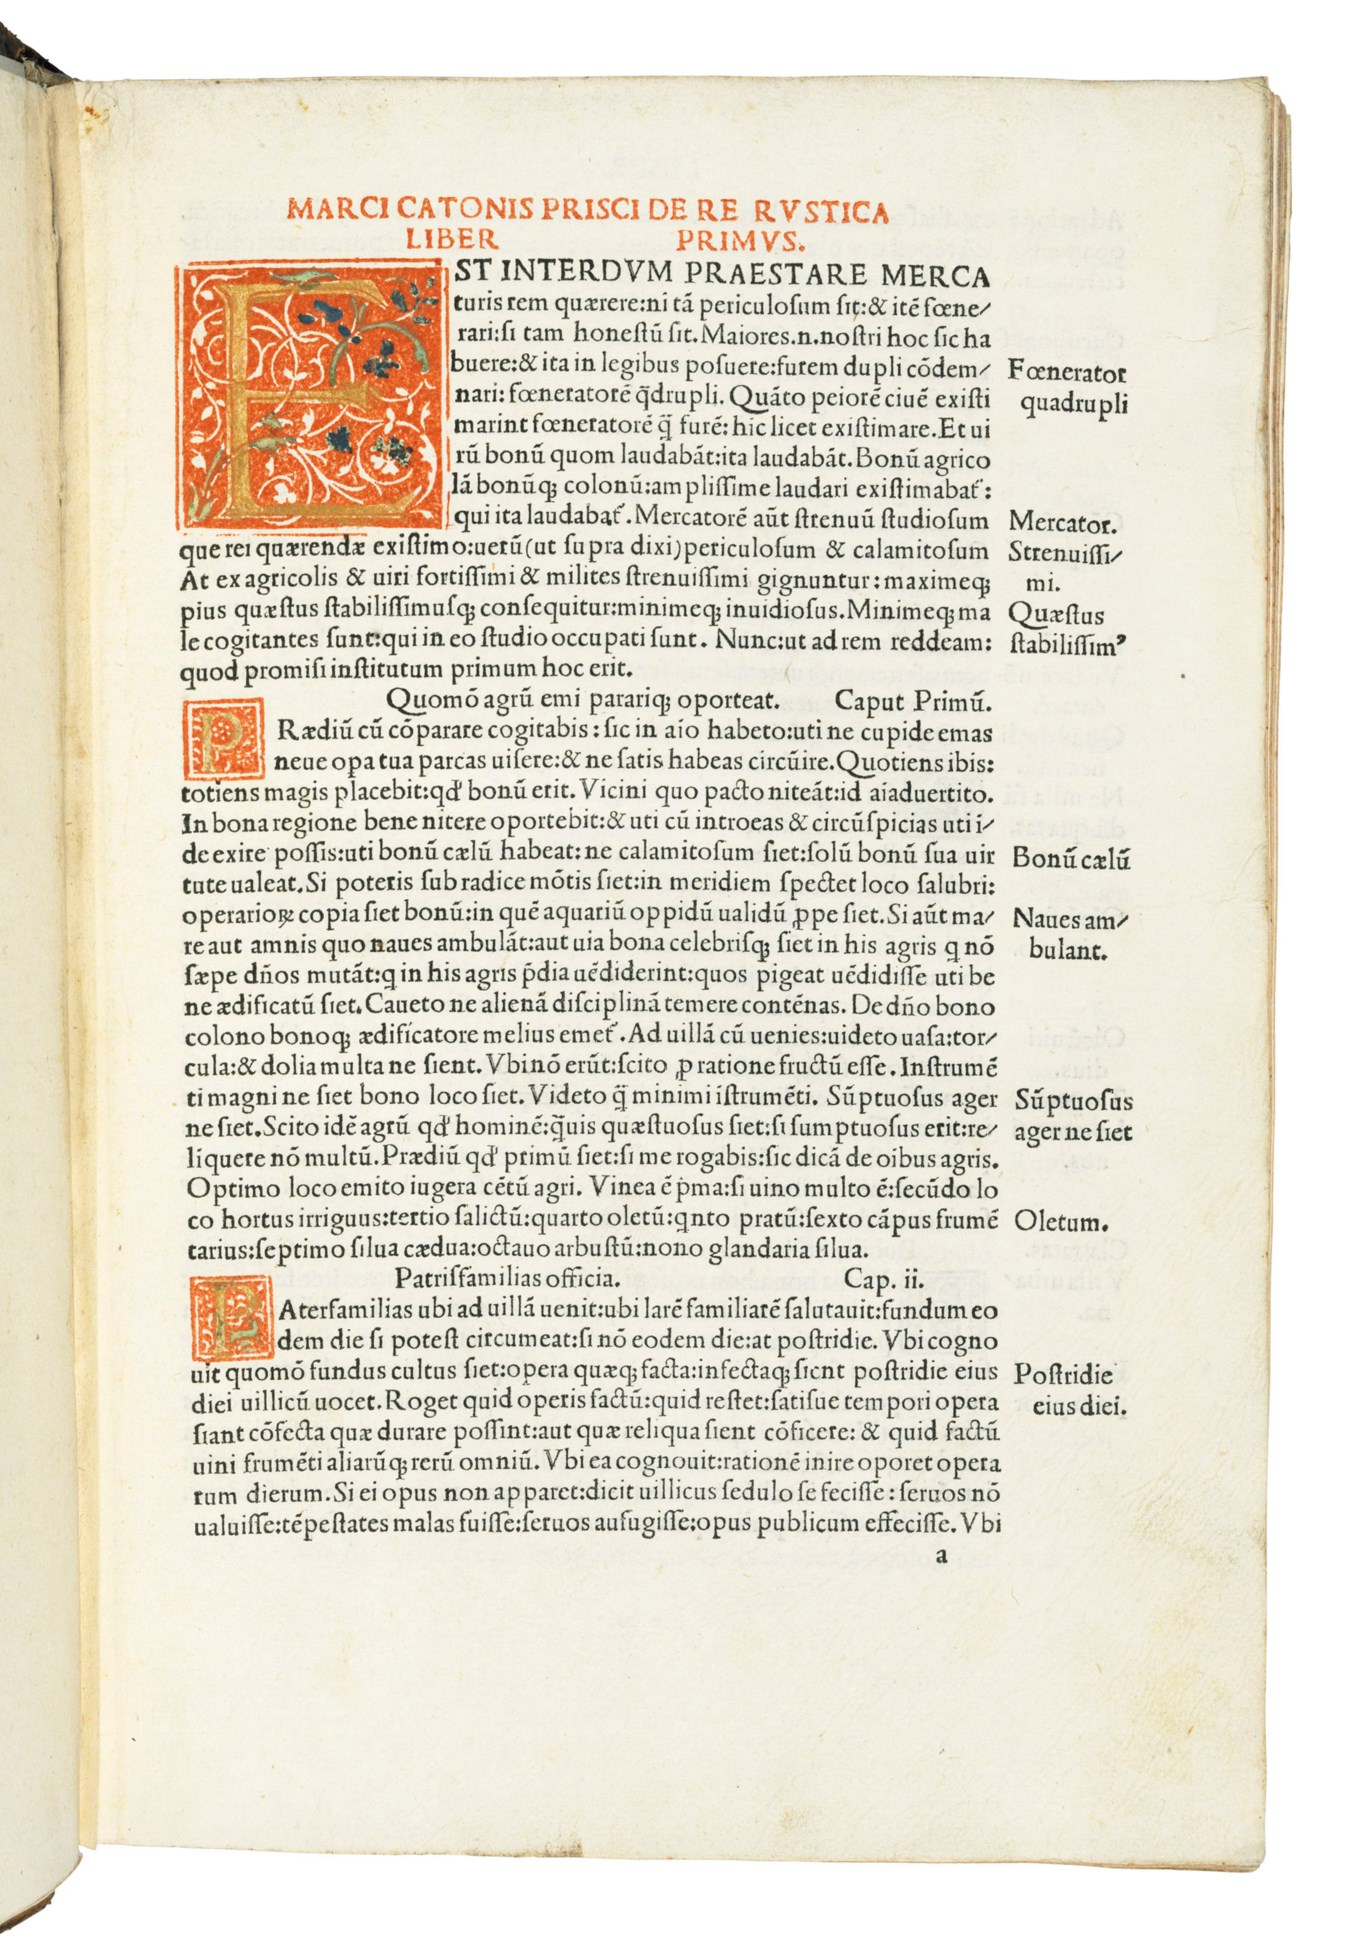 MARCI CATONIS PRISCI DE RE RVSTICA
LIBER PRIMVS.
EST INTERDVM PRAESTARE MERCA
turis rem quærere:ni tā periculosum sit:& itē fœne/
rari:si tam honestū sit. Maiores.n.nostri hoc sic ha
buere:& ita in legibus posuere:furem dupli cōdem/
nari: fœneratorē q̄drupli. Quāto peiorē ciuē existi
marint fœneratorē q̄ furē: hic licet existimare. Et ui
rū bonū quom laudabāt:ita laudabāt. Bonū agrico
lā bonūq; colonū:amplissime laudari existimabat᷑:
qui ita laudabat᷑. Mercatorē aūt strenuū studiosum
que rei quærendæ existimo:uerū(ut supra dixi)periculosum & calamitosum
At ex agricolis & uiri fortissimi & milites strenuissimi gignuntur: maximeq;
pius quæstus stabilissimusq; consequitur:minimeq; inuidiosus. Minimeq; ma
le cogitantes sunt:qui in eo studio occupati sunt. Nunc:ut ad rem reddeam:
quod promisi institutum primum hoc erit.
Fœnerator
quadrupli
Mercator.
Strenuissi/
mi.
Quæstus
stabilissimꝰ
Quomō agrū emi parariq; oporteat. Caput Primū.
PRædiū cū cōparare cogitabis: sic in aīo habeto:uti ne cupide emas
neue opa tua parcas uisere:& ne satis habeas circūire. Quotiens ibis:
totiens magis placebit:qđ bonū erit. Vicini quo pacto niteāt:id aīaduertito.
In bona regione bene nitere oportebit:& uti cū introeas & circūspicias uti i/
de exire possis:uti bonū cælū habeat: ne calamitosum siet:solū bonū sua uir
tute ualeat. Si poteris sub radice mōtis siet:in meridiem spectet loco salubri:
operarioꝝ copia siet bonū:in quē aquariū oppidū ualidū ꝓpe siet. Si aūt ma/
re aut amnis quo naues ambulāt:aut uia bona celebrisq; siet in his agris q nō
sæpe dños mutāt:q in his agris p̄dia uēdiderint:quos pigeat uēdidisse uti be
ne ædificatū siet. Caueto ne alienā disciplinā temere contēnas. De dño bono
colono bonoq; ædificatore melius emet᷑. Ad uillā cū uenies:uideto uasa:tor/
cula:& dolia multa ne sient. Vbi nō erūt:scito ꝓ ratione fructū esse. Instrumē
ti magni ne siet bono loco siet. Videto q̄ minimi īstrumēti. Sūptuosus ager
ne siet. Scito idē agrū qđ hominē:q̄uis quæstuosus siet:si sumptuosus erit:re/
liquere nō multū. Prædiū qđ primū siet:si me rogabis:sic dicā de oibus agris.
Optimo loco emito iugera cētū agri. Vinea ē p̄ma:si uino multo ē:secūdo lo
co hortus irriguus:tertio salictū:quarto oletū:qnto pratū:sexto cāpus frumē
tarius:septimo silua cædua:octauo arbustū:nono glandaria silua.
Bonū cælū
Naues am/
bulant.
Sūptuosus
ager ne siet
Oletum.
Patrisfamilias officia. Cap. ii.
PAterfamilias ubi ad uillā uenit:ubi larē familiarē salutauit:fundum eo
dem die si potest circumeat:si nō eodem die:at postridie. Vbi cogno
uit quomō fundus cultus siet:opera quæq; facta:infectaq; sient postridie eius
diei uillicū uocet. Roget quid operis factū:quid restet:satisue tempori opera
siant cōfecta quæ durare possint:aut quæ reliqua sient cōficere: & quid factū
uini frumēti aliarūq; rerū omniū. Vbi ea cognouit:rationē inire oporet opera
rum dierum. Si ei opus non apparet:dicit uillicus sedulo se fecisse: seruos nō
ualuisse:tēpestates malas fuisse:seruos aufugisse:opus publicum effecisse. Vbi
Postridie
eius diei.
a